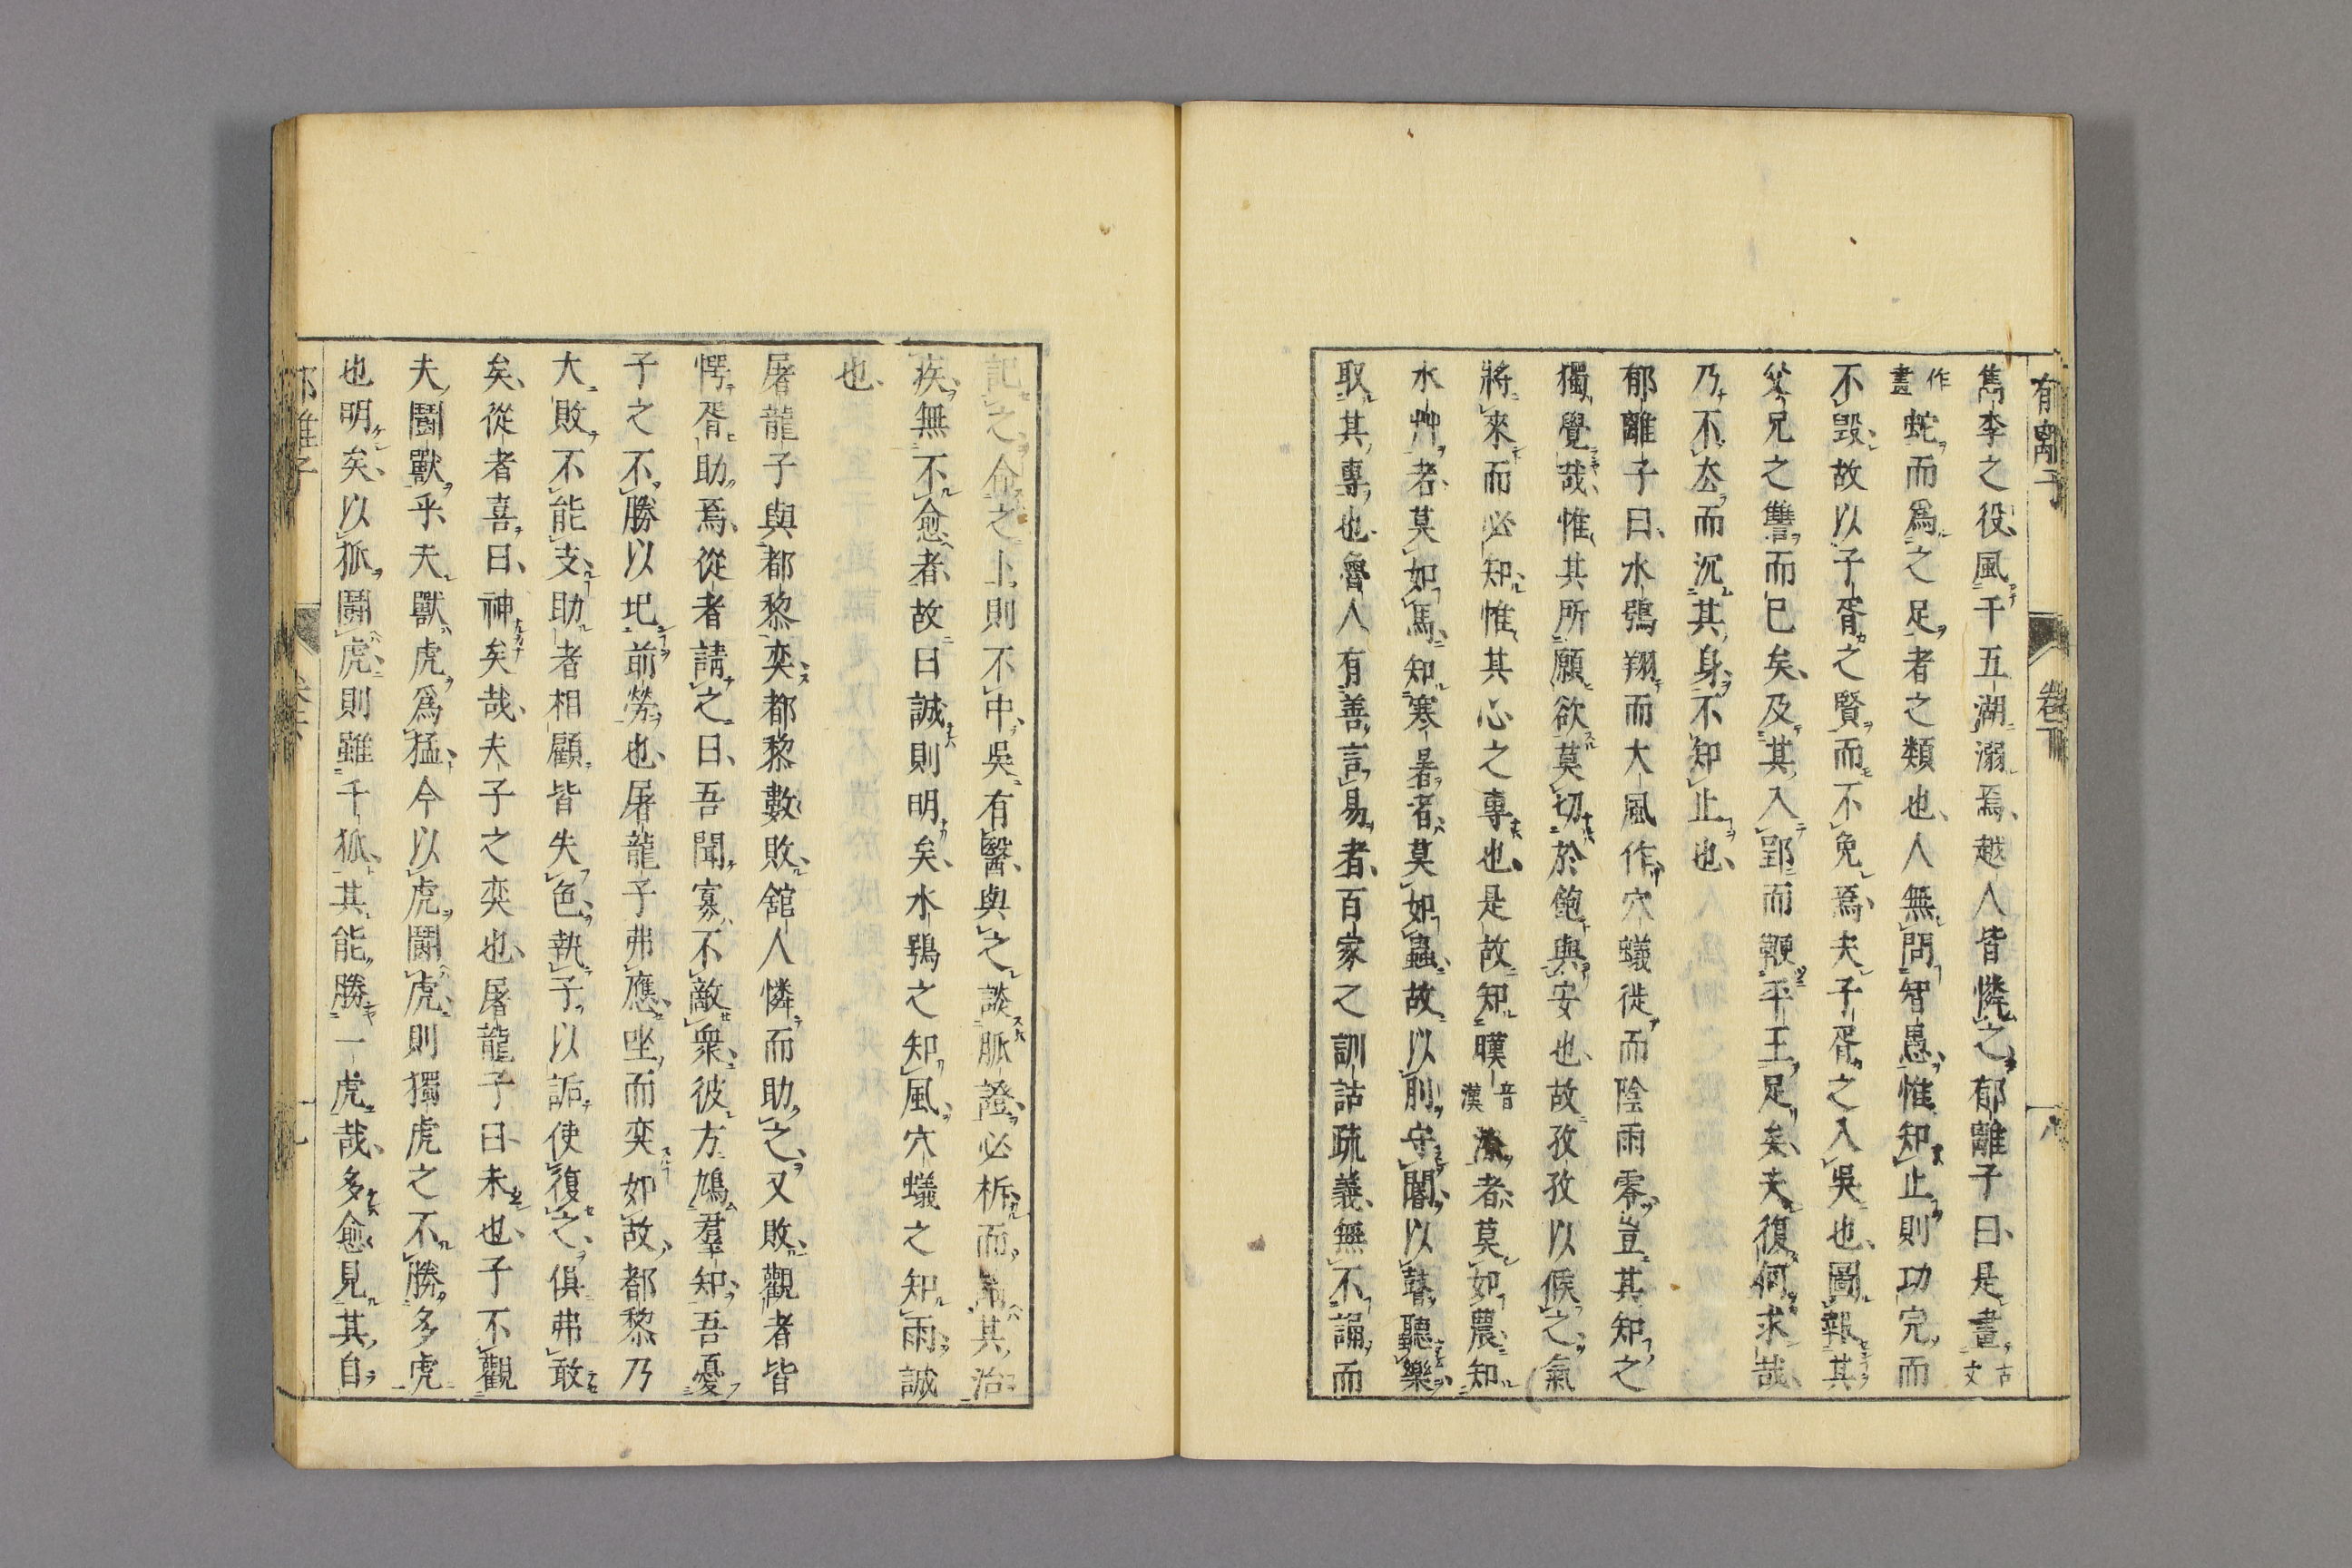 郁離子　卷下　八
雋李之役風于五湖溺焉越人皆憐之郁離子曰是畫古文
作畫蛇而爲之足者之類也人無問智愚惟知止則功完而
不毀故以子胥之賢而不免焉夫子胥之入吳也圖報其
父兄之讐而已矣及其入郢而鞭平王足矣夫復何求哉
乃不去而沉其身不知止也
郁離子曰水鴞翔而大風作穴蟻徙而陰雨零豈其知之
獨覺哉惟其所願欲莫切於飽與安也故孜孜以候之氣
將來而必知惟其心之專也是故知暵音漢潦者莫如農知
水艸者莫如馬知寒暑者莫如蟲故以刖守闇以瞽聽樂
取其專也魯人有善言易者百家之訓詁疏義無不誦而
記之命之卜則不中吳有醫與之談脈證必析而其治
疾無不愈者故曰誠則明矣水鴞之知風穴蟻之知雨誠
也
屠龍子與都黎奕都黎數敗館人憐而助之又敗觀者皆
愕胥助焉從者請之曰吾聞寡不敵衆彼方鳩羣知吾憂
子之不勝以圯前勞也屠龍子弗應坐而奕如故都黎乃
大敗不能支助者相顧皆失色執子以詬使復之俱弗敢
矣從者喜曰神矣哉夫子之奕也屠龍子曰未也子不觀
夫鬪獸乎夫獸虎爲猛今以虎鬪虎則獨虎之不勝多虎
也明矣以狐鬪虎則雖千狐其能勝一虎哉多愈見其自
郁離子